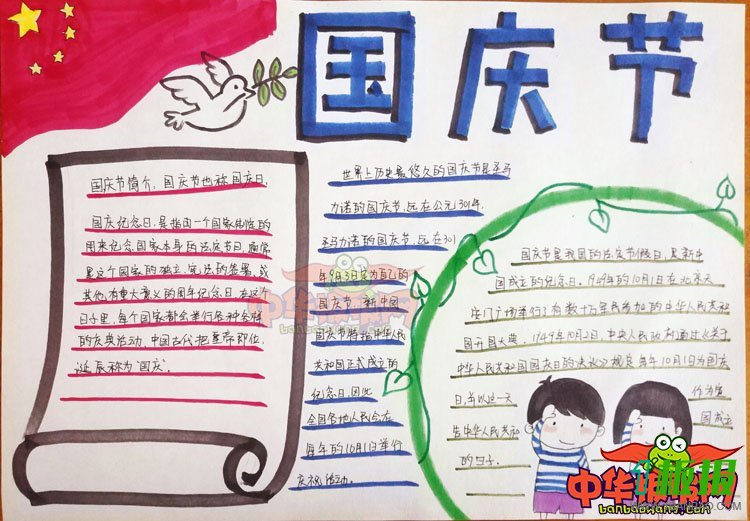 国庆节
国庆节简介，国庆节也称国庆日、
国庆纪念日，是指由一个国家制定的
用来纪念国家本身的法定节日，通常
是这个国家的独立、宪法的签署，或
其他有重大意义的周年纪念日，在这个
日子里，每个国家都会举行各种各样
的庆典活动，中国古代把皇帝即位、
诞辰称为"国庆"。
世界上历史最悠久的国庆节是圣马
力诺的国庆节，远在公元301年，
圣马力诺的国庆节，远在301
年9月3日定为自己的
国庆节，新中国
国庆节特指中华人民
共和国正式成立的
纪念日，因此
全国各地人民会在
每年的10月1日举行
庆祝活动。
国庆节是我国的法定节假日，是新中
国成立的纪念日。1949年的10月1日在北京天
安门广场举行了有数十万军民参加的中华人民共和
国开国大典，1749年10月2日，中央人民政府通过《关于
中华人民共和国国庆日的决议》规定每年10月1日为国庆
日，并以这一天
作为宣
告中华人民共和
国成立
的日子。
中华板报网
banbaowang.com
中华板报
banbaowang.com